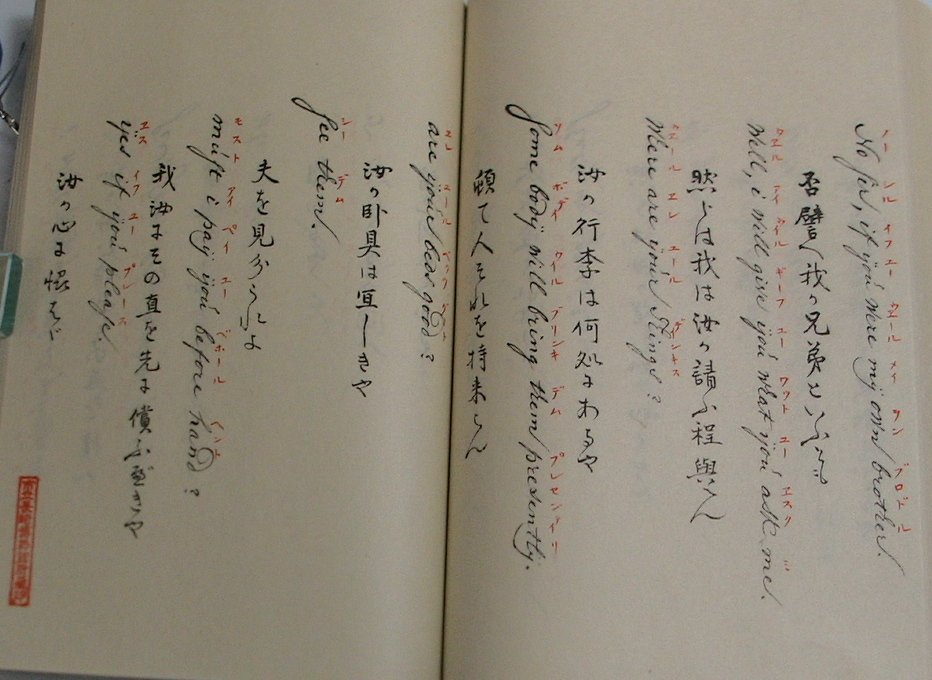 ノー シル イフ ユー ウエール メイ ヲン ブロシェル
No sir, if you were my own brother.
否譬へ我の兄弟といへども
ウエル アイ ウイル ギーフ ユー ワット ユー エスク ミー
Well, i will give you what you ask me.
然らは我は汝の請ふ程與へん
ウエール エル ユール ディンキス
Where are you'r things?
汝の行李は何処にあるや
ソム ボデイ ウイル ブリンキ デム プレセントリー
Some body will bring them presently.
頓て人それを持来らん
エル ユール ベッヅ グード
are you'r beds good?
汝の臥具は宜しきや
シー デム
See them.
夫を見分られよ
モスト アイ ペイ ユー ビホール ヘンド
must i pay you before hand?
我汝にその直を先に償ふ可きや
エス イフ ユー プレース
yes if you please.
汝の心に